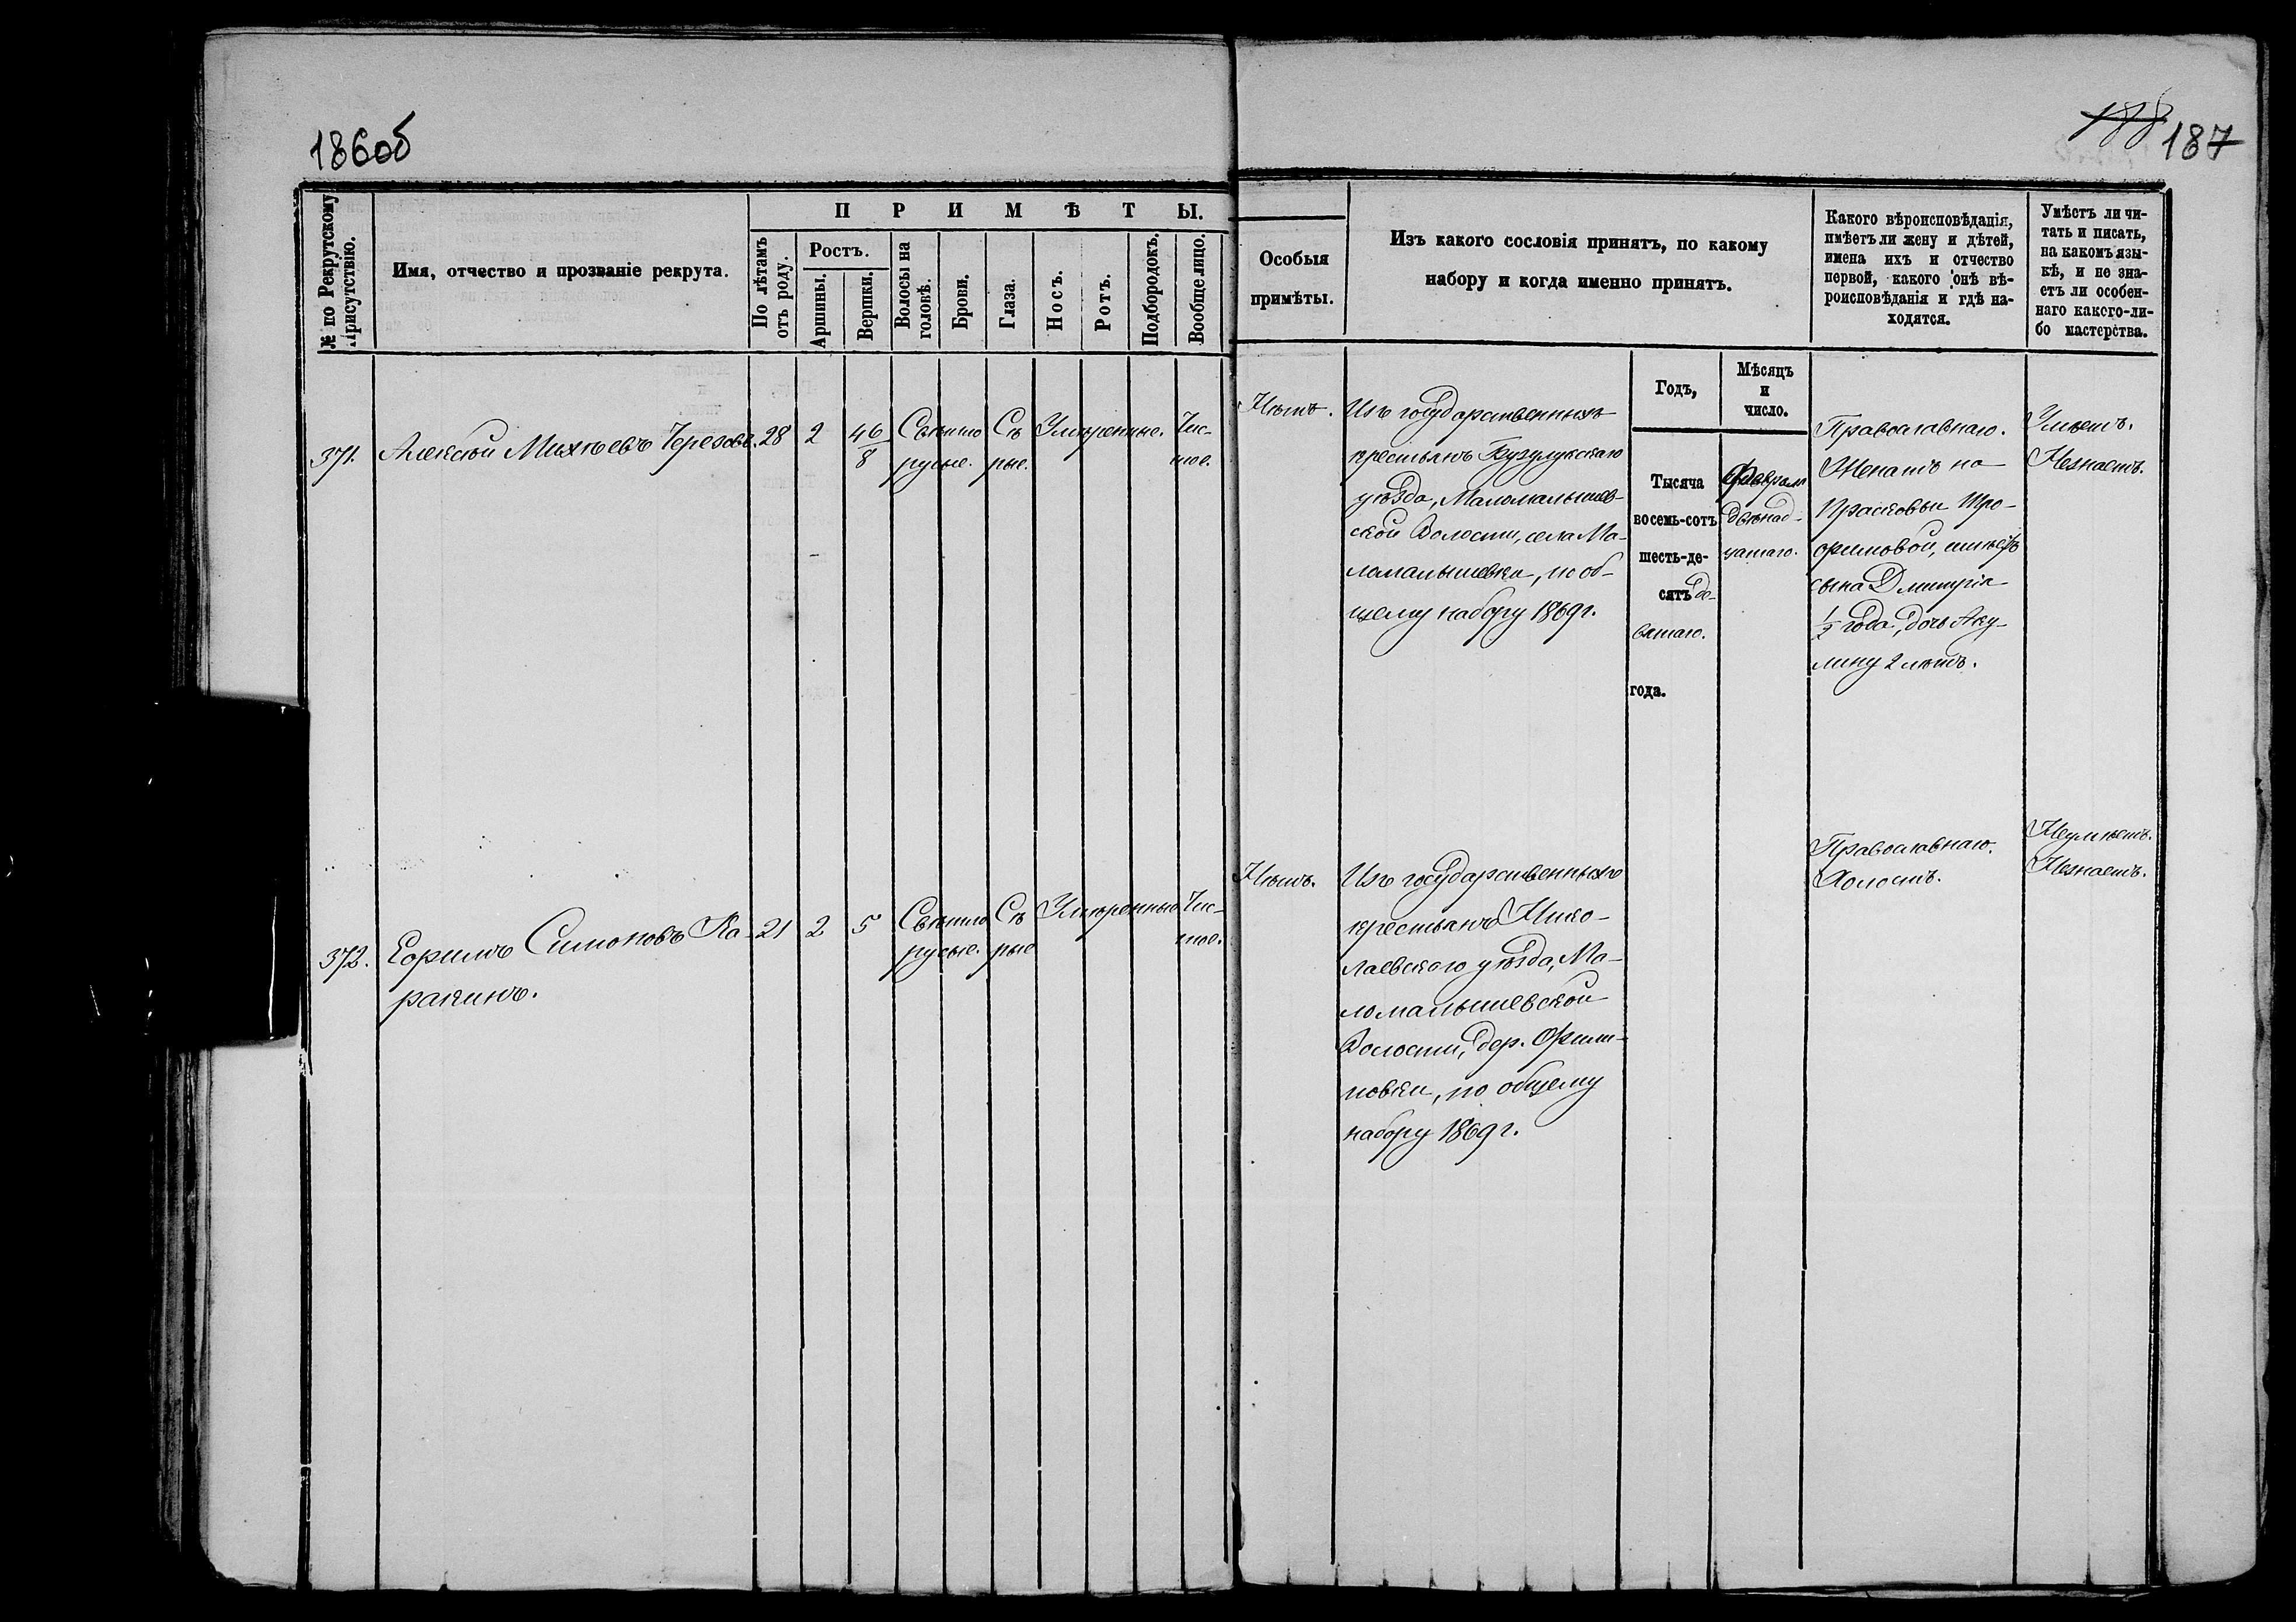 186об
188 187
№ по Рекрутскому Присутствію.
Имя, отчество и прозваніе рекрута.
ПРИМѢТЫ.
По лѣтамъ отъ роду.
Ростъ.
Аршины.
Вершки.
Волосы на головѣ.
Брови.
Глаза.
Носъ.
Ротъ.
Подбородокъ.
Вообще лицо.
Особыя
примѣты.
Изъ какого сословія принятъ, по какому
набору и когда именно принятъ.
Какого вѣроисповѣданія,
имѣетъ ли жену и дѣтей,
имена ихъ и отчество
первой, какого онѣ вѣ-
роисповѣданія и гдѣ на-
ходятся.
Умѣетъ ли чи-
тать и писать,
на какомъ язы-
кѣ, и не зна-
етъ ли особен-
наго какого-ли-
бо мастерства.
371.
Алексѣй Михѣевъ Черезовъ.
28
2
4 6/8
Свѣтло
русые.
Сѣ
рые.
Умѣренные.
Чис-
тое.
Нѣтъ.
Изъ государственныхъ
крестьянъ Бузулукскаго
уѣзда, Маломалышев-
ской Волости, села Ма-
ломалышевки, по об-
щему набору 1869г.
Годъ,
Тысяча
восемь-сотъ
шесть-де-
сятъ де-
вятаго.
года.
Мѣсяцъ
и
число.
Февраля
двѣнад-
цатаго.
Православнаго.
Женатъ на
Прасковьи Тро-
фимовой, имѣетъ
сына Дмитрія
1/2 года, дочь Аку-
лину 2 лѣтъ.
Умѣетъ.
Незнаетъ.
372.
Ефимъ Симоновъ Ка-
ракинъ.
21
2
5
Свѣтло
русые.
Сѣ
рые
Умѣренные
Чис-
тое.
Нѣтъ.
Изъ государственныхъ
крестьянъ Нико-
лаевскаго уѣзда, Ма-
ломалышевской
Волости, дер. Фили-
повки, по общему
набору 1869г.
Православнаго.
Холостъ.
Неумѣетъ.
Незнаетъ.